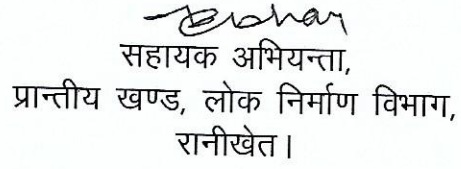 सहायक अभियन्ता,
प्रान्तीय खण्ड, लोक निर्माण विभाग,
रानीखेत।